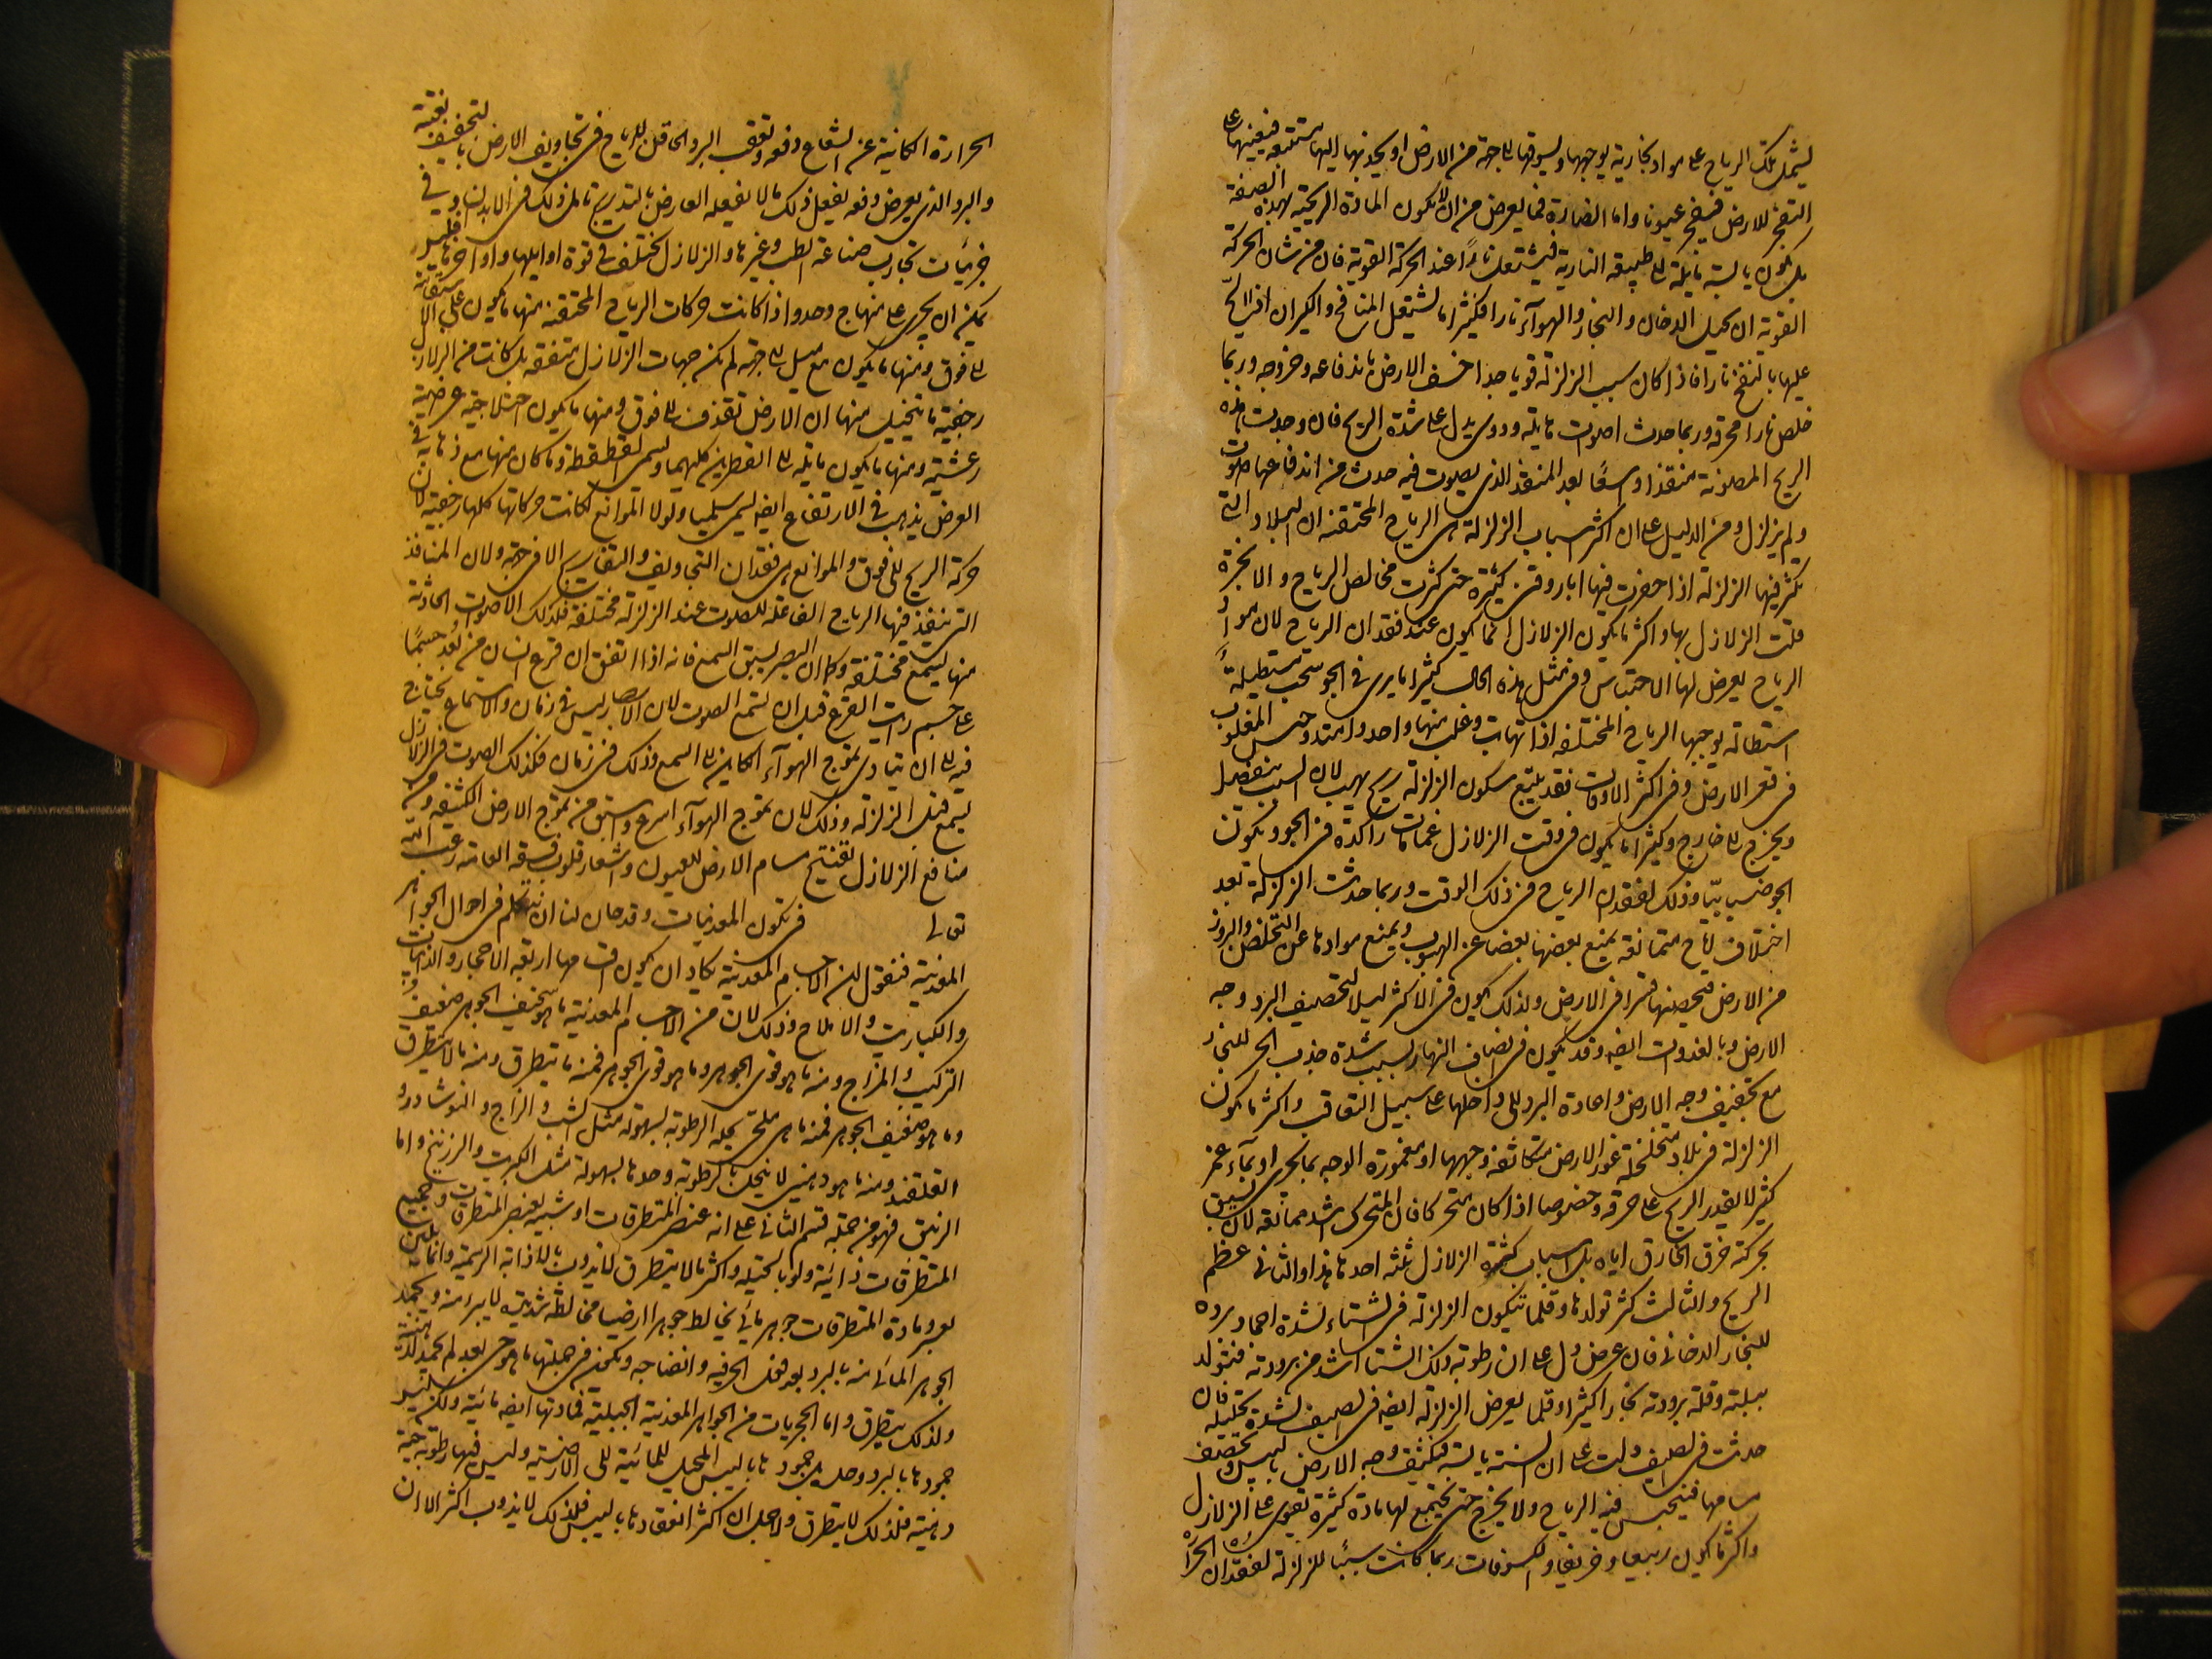 ليشمل تلك الرياح على مواد بخارية يوجبها ويسوقها الى جهة من الارض او يجذبها اليها مستتبعة فيعينها على
التفجر للارض فينفجر عيونا واما الضارة فما يعرض من ان لا يكون المادة الريحية بهذه الصفة
بل يكون يابسة مايلة الى طبيعة النارية فيشتعل نارا عند الحركة القوية فان من شان الحركة
القوية ان يحيل الدخان والبخار والهوآء نارا فكثيرا ما يشتعل المنافخ والكيران اذا الح
عليها بالنفخ نارا فاذا كان سبب الزلزلة قويا جدا خسف الارض باندفاعه وخروجه وربما
خلص نارا محرقة وربما حدث اصوات هايلة ودوى يدل على شدة الريح فان وجدت هذه
الريح المصوتة منفذا واسعا بعد المنفذ الذى يصوت فيه حدث من اندفاعها صوت
ولم يزلزل ومن الدليل على ان اكثر اسباب الزلزلة هى الرياح المحتقنة ان البلاد التى
تكثر فيها الزلزلة اذا حفرت فيها ابار وقنى كثيرة حتى كثرت مخالص الرياح والابخرة
قلت الزلازل بها واكثر ما يكون الزلازل انما يكون عند فقدان الرياح لان مواد
الرياح يعرض لها الاحتباس وفى مثل هذه الحال كثيرا ما يرى فى الجو سحب مستطيلة
استطالة يوجبها الرياح المختلفة اذا تهابت وغلب منها واحد وامتد وحبس المغلوب
فى قعر الارض وفى اكثر الاوقات فقد يتبع سكون الزلزلة ريح يهب لان السبب ينفصل
ويخرج الى خارج وكثيرا ما يكون فى وقت الزلازل غمامات راكدة فى الجو ويكون
الجو ضبابيا وذلك لفقدان الرياح فى ذلك الوقت وربما حدثت الزلزلة بعد
اختلاف رياح متمانعة يمنع بعضها بعضا عن الهبوب ويمنع موادها عن التخلص والبروز
من الارض فيحصنها قسرا فى الارض ولذلك يكون فى الاكثر ليلا لتحصيف البرد وجه
الارض وبالغدوات ايضه وقد يكون فى انصاف النهار بسبب شدة جذب الحر للبخار
مع تجفيف وجه الارض واعادة البرد الى داخلها على سبيل التعاقب واكثر ما يكون
الزلزلة فى بلاد متخلخلة غور الارض متكاثفة وجهها او مغمورة الوجه بما يجرى او بمآء غمر
كثير لا يقدر الريح على خرقه وخصوصا اذا كان متحركا فان المتحرك اشد ممانعة لانه يسبق
بحركته خرق الخارق اياه بل اسباب كثرة الزلازل ثلثه احدها هذا والثانى عظم
الريح والثالث كثرة تولدها وقلما تتكون الزلزلة فى الشتاء لشدة اجماد برده
للبخار الدخانى فان عرض دل على ان رطوبة ذلك الشتا اشد من برودته فيتولد
ببلته وقلة برودته بخارا كثيرا وقلما يعرض الزلزلة ايضه فى الصيف لشدة تحليله فان
حدثت فى الصيف دلت على ان السنة يابسة فتكثف وجه الارض باليبس وتحصف
مسامها فيحتبس فيه الرياح ولا يخرج حتى يجتمع لها مادة كثيرة تقوى على الزلازل
واكثر ما يكون ربيعا وخريفا والكسوفات ربما كانت سببا للزلزلة لفقدان الحرارة
الحرارة الكاينة عن الشعاع دفعة وتعقب البرد الحاقن للرياح فى تجاويف الارض بالتجفيف بغتة
والبرد الذى يعرض دفعة يفعل ذلك ما لا يفعله العارض بالتدريج تامل ذلك فى الابدان وفى
جزئيات تجارب صناعة الطب وغيرها والزلازل يختلف فى قوة اوايلها واواخرها فليس
يمكن ان يجرى على منهاج واحد واذا كانت حركات الرياح المحتقنة منها ما يكون على الاستقامة
الى فوق ومنها ما يكون مع ميل الى جهة لم يكن جهات الزلازل متفقة بل كانت من الزلازل
رجفية ما يتخيل منها ان الارض تقذف الى فوق ومنها ما يكون اختلاجية عرضية
رعشية ومنها ما يكون مايلة الى القطرين كليهما ويسمى القطقطة وما كان منها مع ذهابه فى
العرض يذهب فى الارتفاع ايضه يسمى سلميا ولولا الموانع لكانت حركاتها كلها رجفية لان
حركة الريح الى فوق والموانع هى فقدان التجاويف والتفاريس الا فى جهة ولان المنافذ
التى ينفذ فيها الرياح الفاعلة للصوت عند الزلزلة مختلفة فلذلك الاصوات الحادثة
منها يسمع مختلفة وكما ان البصر يسبق السمع فانه اذا اتفق ان قرع انسان من بعد جسما
على جسم رايت القرع قبل ان تسمع الصوت لان الابصار ليس فى زمان والاستماع يحتاج
فيه الى ان يتادى تموج الهوآء الكاين الى السمع وذلك فى زمان فكذلك الصوت فى الزلازل
يسمع قبل الزلزلة وذلك لان تموج الهوآء اسرع واسبق من تموج الارض الكثيفة ومن
منافع الزلازل تفتيح مسام الارض للعيون واشعار قلوب فسقة العامة رعب الله
تعالى فى تكون المعدنيات وقد حان لنا ان نتكلم فى احوال الجواهر
المعدنية فنقول ان الاجسام المعدنية يكاد ان يكون اقسامها اربعة الاحجار والذائبات
والكباريت والاملاح وذلك لان من الاجسام المعدنية ما هو سخيف الجوهر ضعيف
التركيب والمزاج ومنه ما هو قوى الجوهر وما هو قوى الجوهر فمنه ما يتطرق ومنه ما لا يتطرق
وما هو ضعيف الجوهر فمنه ما هو ملحى يحله الرطوبة بسهولة مثل الشب والزاج والنوشادر و
القلقند ومنه ما هو دهنى لا ينحل بالرطوبة وحدها بسهولة مثل الكبريت والزرنيخ واما
الزيبق فهو من جملة قسم الثانى على انه عنصر المتطرقات او شبيه بعنصر المتطرقات وجميع
المتطرقات ذائبة ولو بالحيلة واكثر ما لا يتطرق لا يذوب بالاذابة الرسمية وانما يلين
بعسر ومادة المتطرقات جوهر مائى يخالط جوهرا ارضيا مخالطة شديدة لا يبرا منه ويجمد
الجوهر المائى منه بالبرد بعد فعل الحر فيه وانضاجه ويكون فى جملتها ما هو حى بعد لم يجمد لدهنيته
ولذلك يتطرق واما الحجريات من الجواهر المعدنية الجبلية فمادتها ايضه مائية ولكن ليس
جمودها بالبرد وحده بل جمودها باليبس المحيل للمائية الى الارضية وليس فيها رطوبة حية
دهنية فلذلك لا يتطرق ولاجل ان اكثر انعقادها باليبس فلذلك لا يذوب اكثر الا ان